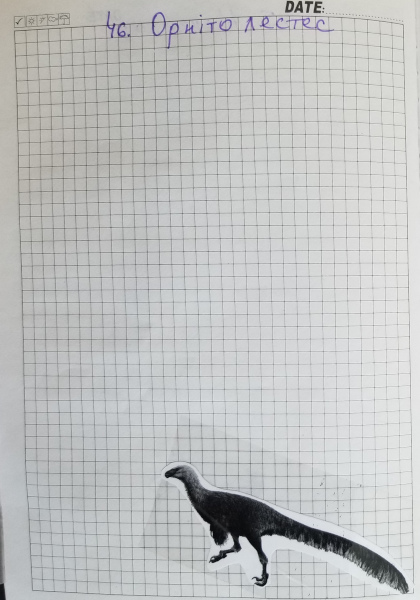 DATE:
46. Орнітолестес